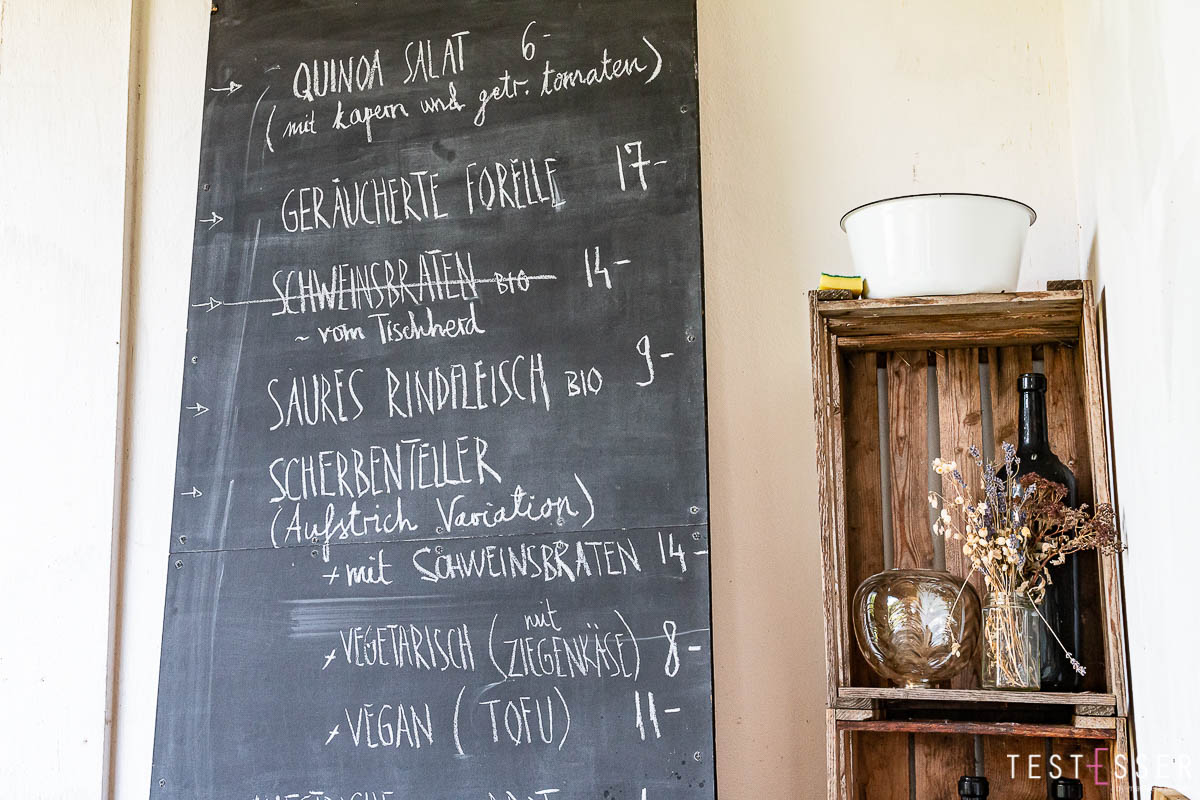 → QUINOA SALAT 6-
(mit kapern und getr. tomaten)
→ GERÄUCHERTE FORELLE 17-
→ SCHWEINSBRATEN BIO 14-
~ vom Tischherd
→ SAURES RINDFLEISCH BIO 9-
→ SCHERBENTELLER
(Aufstrich Variation)
+ mit SCHWEINSBRATEN 14-
+ VEGETARISCH (mit ZIEGENKÄSE) 8-
+ VEGAN (TOFU) 11-
TESTESSER